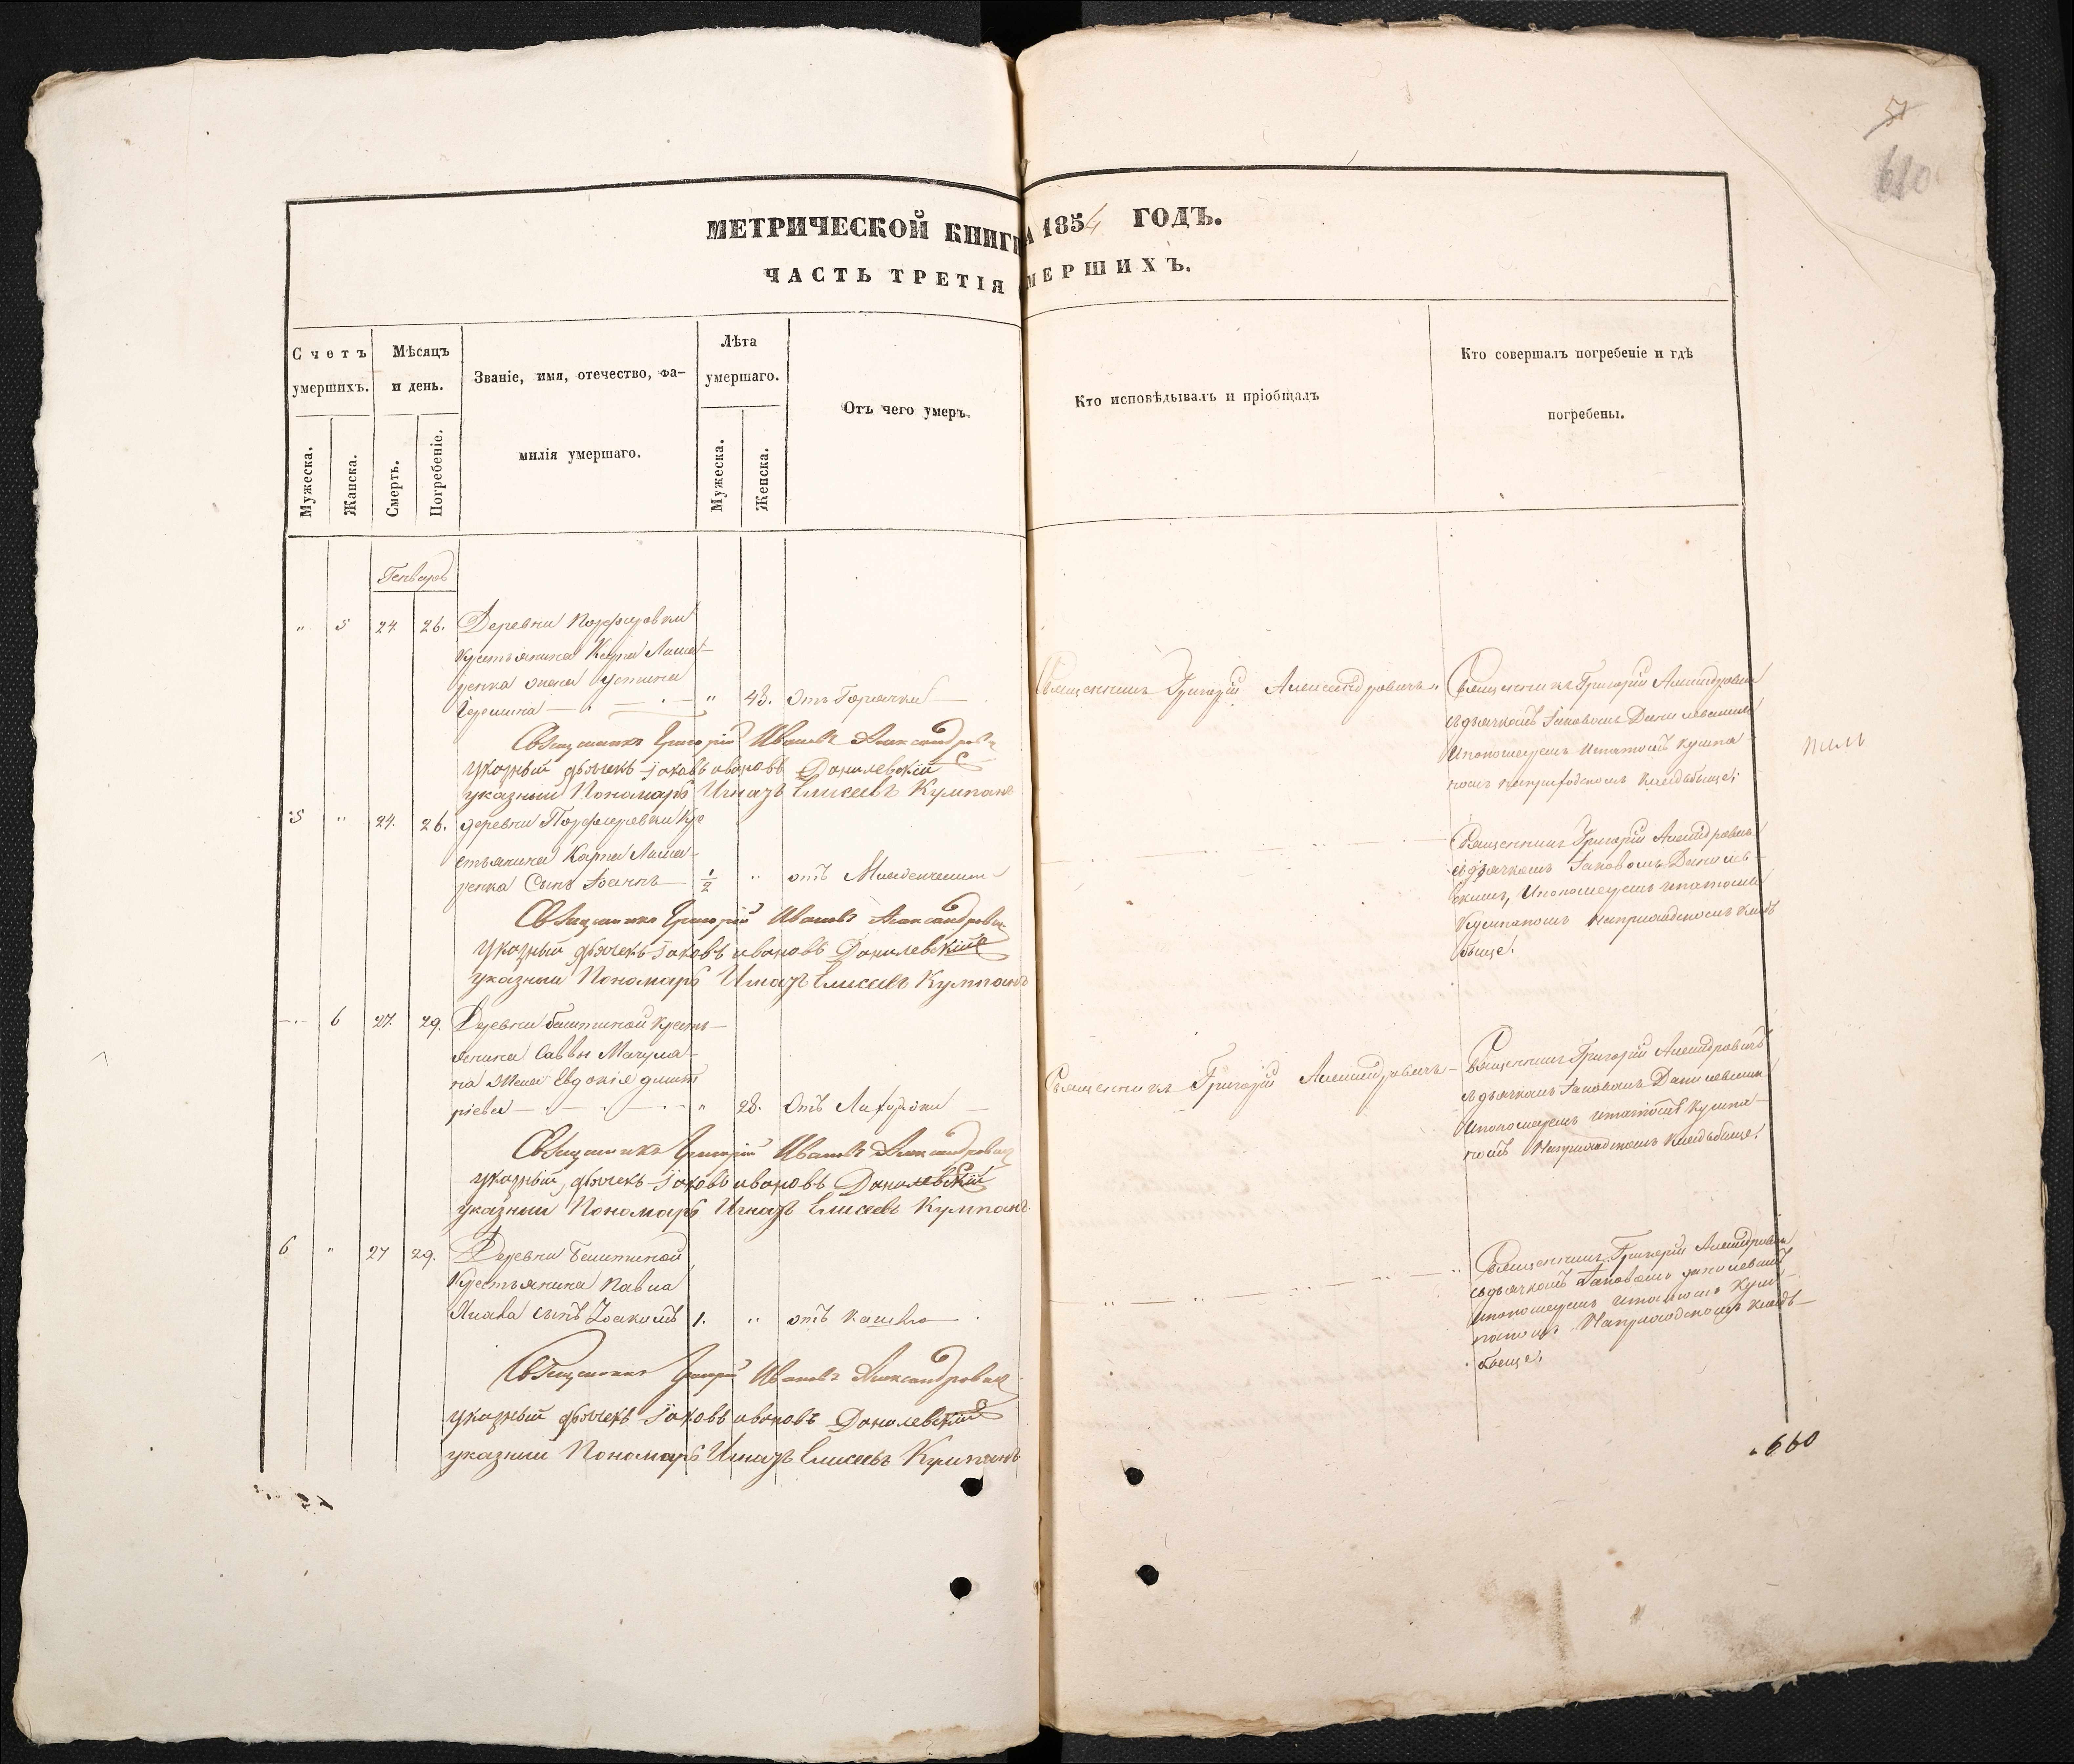 5
680
МЕТРИЧЕСКОЙ КНИГИ
А 1854 ГОДЪ.
ЧАСТЬ ТРЕТІЯ
МЕРШИХЪ.
Счетъ умершихъ.
Мѣсяцъ и день.
Званіе, имя, отечество, фа-
милія умершаго.
Лѣта умершаго.
Отъ чего умеръ.
Кто исповѣдывалъ и пріобщалъ
Кто совершалъ погребеніе и гдѣ
погребены.
Мужеска.
Жанска.
Смерть.
Погребеніе.
Мужеска.
Женска.
Генварь
" 5 24 26. Деревни
Крестьянина Карпа
ренка жена Устина
" 43. Отъ Горячки
Священникъ Григорій Александровичъ.
Священникъ Григорій Александровичъ
съ дьячкомъ Іаковомъ Данилевскимъ
и пономаремъ Игнатомъ Кумпа-
номъ на приходскомъ кладьбище.
Священникъ Григорій Ивановъ Александровичъ
указный дьячекъ Іаковъ ивановъ Данилевскій
указный Пономарь Игнатъ Елисеевъ Кумпанъ
5 " 24. 26. деревни Порфировки Кре
стьянина Карпа
ренка Сынъ Іоаннъ 1/2 " отъ Младенческой
Священникъ Григорій Александровичъ
съ дьячкомъ Іаковомъ Данилев-
скимъ, и пономаремъ игнатомъ
Кумпаномъ на приходскомъ кладь
бище.
Священникъ Григорій Ивановъ Александровичъ
указный дьячекъ Іаковъ ивановъ Данилевскій
указный Пономарь Игнатъ Елисеевъ Кумпанъ
6 27. 29. Деревни Крестъ-
янина Саввы
на жена Евдокія дмит
ріева " 28. Отъ
Священникъ Григорій Александровичъ
Священникъ Григорій Александровичъ
съ дьячкомъ Іаковомъ Данилевскимъ
и пономаремъ игнатомъ Кумпа-
номъ на приходскомъ кладьбище.
Священникъ Григорій Ивановъ Александровичъ
указный дьячекъ Іаковъ ивановъ Данилевскій
указный Пономарь Игнатъ Елисеевъ Кумпанъ
6 " 27 29. Деревни
Крестьянина Павла
сынъ 1. " отъ кашлю
Священникъ Григорій Александровичъ
съ дьячкомъ Іаковомъ данилевскимъ
и пономаремъ игнатомъ Кум-
паномъ на приходскомъ кладь-
бище.
Священникъ Григорій Ивановъ Александровичъ
указный дьячекъ Іаковъ ивановъ Данилевскій
указный Пономарь Игнатъ Елисеевъ Кумпанъ
660